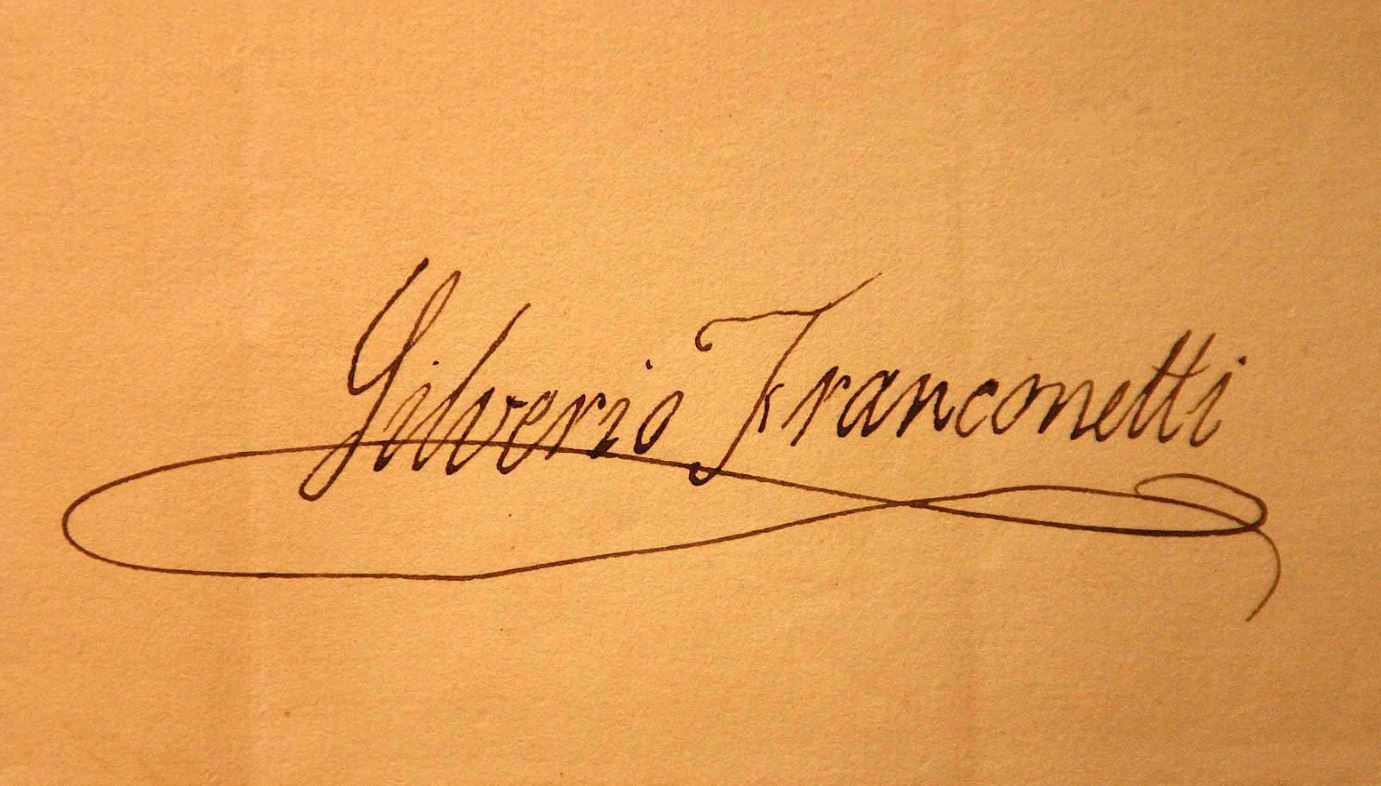 Silverio Franconetti